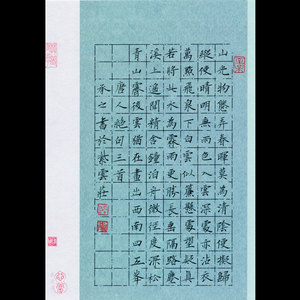 山光物態弄春暉莫為清陰便擬歸
縱使晴明無雨色入雲深處亦沾衣
萬點飛泉下白雲似簾懸處望疑真
若將此水為霖雨更勝長垂隔路塵
溪上遙聞精舍鐘泊舟微徑度深松
青山霽後雲猶在畫出西南四五峯
唐人絕句三首
承之書於紫雲莊